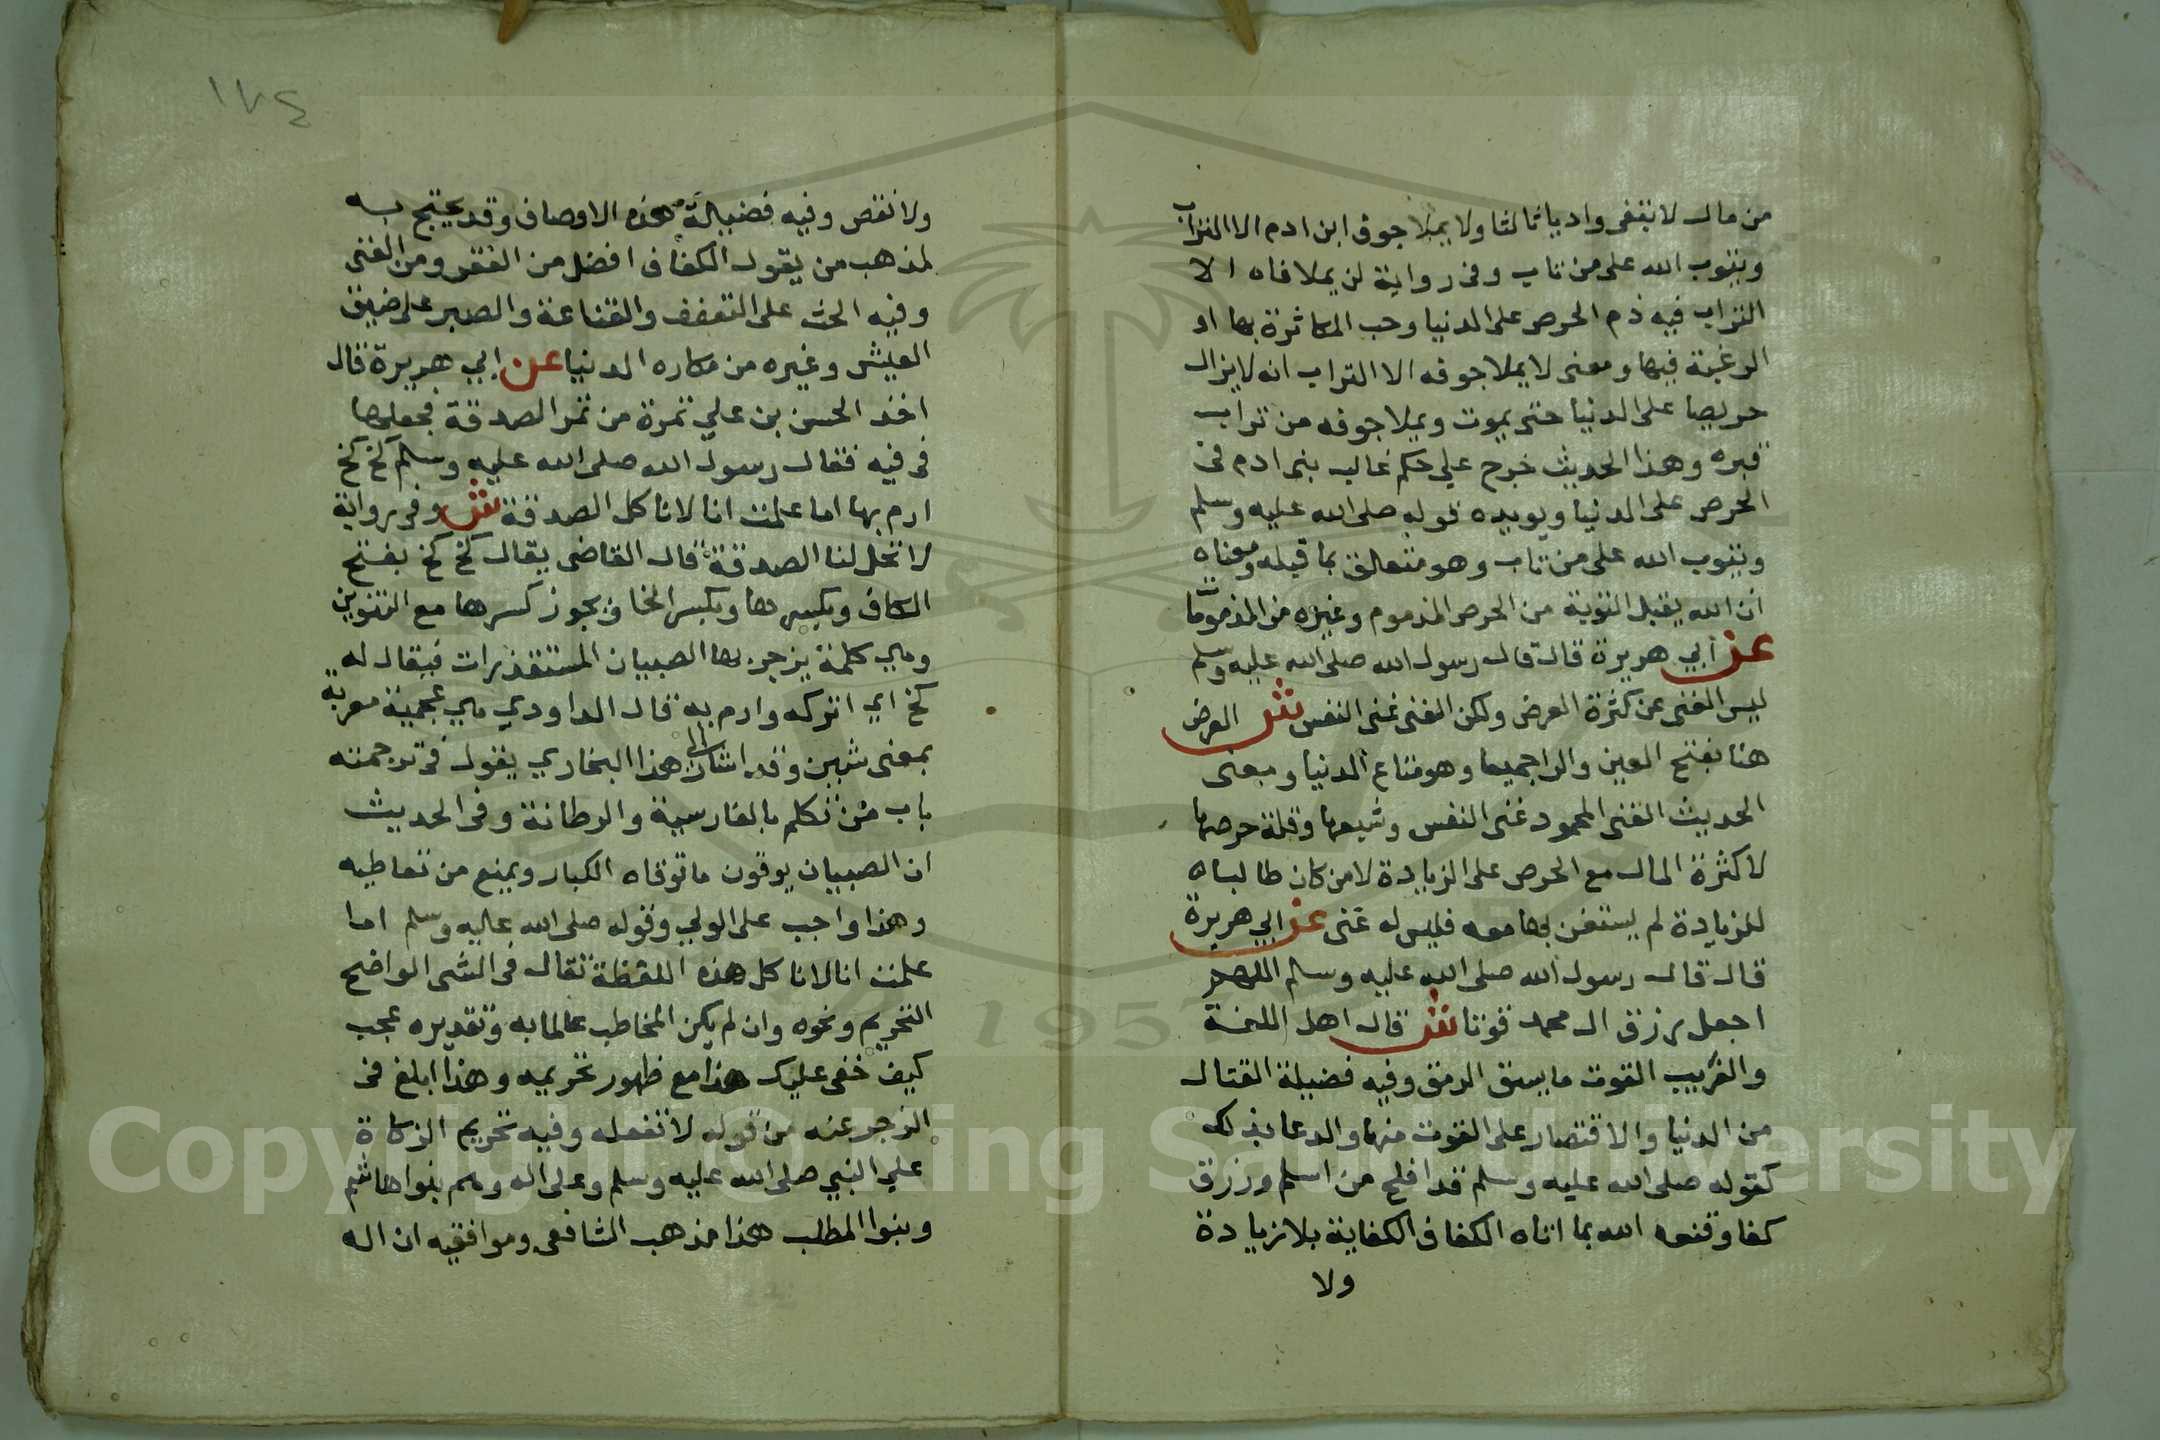 من مال لابتغى واديا ثالثا ولا يملا جوف ابن ادم الا التراب
ويتوب الله على من تاب وفى رواية لن يملا فاه الا
التراب فيه ذم الحرص على الدنيا وحب المكاثرة بها او
الرغبة فيها ومعنى لا يملا جوفه الا التراب انه لا يزال
حريصا على الدنيا حتى يموت ويملا جوفه من تراب
قبره وهذا الحديث خرج علي حكم غالب بنى ادم فى
الحرص على الدنيا ويويده قوله صلى الله عليه وسلم
ويتوب الله على من تاب وهو متعالق بما قبله ومعناه
ان الله يقبل التوبة من الحرص المذموم وغيره من المذمومات
عن أبي هريرة قال قال رسول الله صلى الله عليه وسلم
ليس الغنى عن كثرة العرض ولكن الغنى غنى النفس ش العرض
هنا بفتح العين والرا جميعا وهو متاع الدنيا ومعنى
الحديث الغنى المحمود غنى النفس وشبعها وقلة حرصها
لا كثرة المال مع الحرص على الزيادة لا من كان طالباه
للزيادة لم يستغن بها معه فليس له غنى عن ابي هريرة
قال قال رسول الله صلى الله عليه وسلم اللهم
اجعل رزق ال محمد قوتا ش قال اهل اللغة
والغريب القوت ما يسق الرمق وفيه فضيلة القتال
من الدنيا والاقتصار على القوت منها والدعا بذلك
كقوله صلى الله عليه وسلم قد افلح من اسلم ورزق
كفا وقنعه الله بما اتاه الكفاف الكفاية بلا زيادة
ولا
١٧٤
ولا نقص وفيه فضيلة هذه الاوصاف وقد يحتج به
لمذهب من يقول الكفاف افضل من الفقر ومن الغنى
وفيه الحث على التعفف والقناعة والصبر على ضيق
العيش وغيره من مكاره الدنيا عن ابي هريرة قال
اخذ الحسن بن علي تمرة من تمر الصدقة فجعلها
فى فيه فقال رسول الله صلى الله عليه وسلم كخ كخ
ارم بها اما علمت انا لا ناكل الصدقة ش وفى رواية
لا تحل لنا الصدقة قال القاضى يقال كخ كخ بفتح
الكاف وبكسرها وبكسر الخا ويجوز كسرها مع التنوين
وهي كلمة يزجر بها الصبيان المستقذرات فيقال له
كخ اي اتركه وارم به قال الداودي هي عجمية معربة
بمعنى شبين وقد اشار الى هذا البخاري يقول فى ترجمته
باب من تكلم بالفارسية والرطانة وفى الحديث
ان الصبيان يوقون ما توقاه الكبار ويمنع من تعاطيه
وهذا واجب على الولي وقوله صلى الله عليه وسلم اما
علمت انا لا ناكل هذه اللفظة تقال فى الشى الواضح
التحريم ونحوه وان لم يكن المخاطب عالما به وتقديره عجب
كيف خفى عليك هذا مع ظهور تحريمه وهذا ابلغ فى
الزجر عنه من قوله لا تفعله وفيه تحريم الزكاة
علي النبي صلى الله عليه وسلم وعلى اله وهم بنوا هاشم
وبنوا المطلب هذا مذهب الشافعى وموافقيه ان اله
1957
Copyright © King Saud University